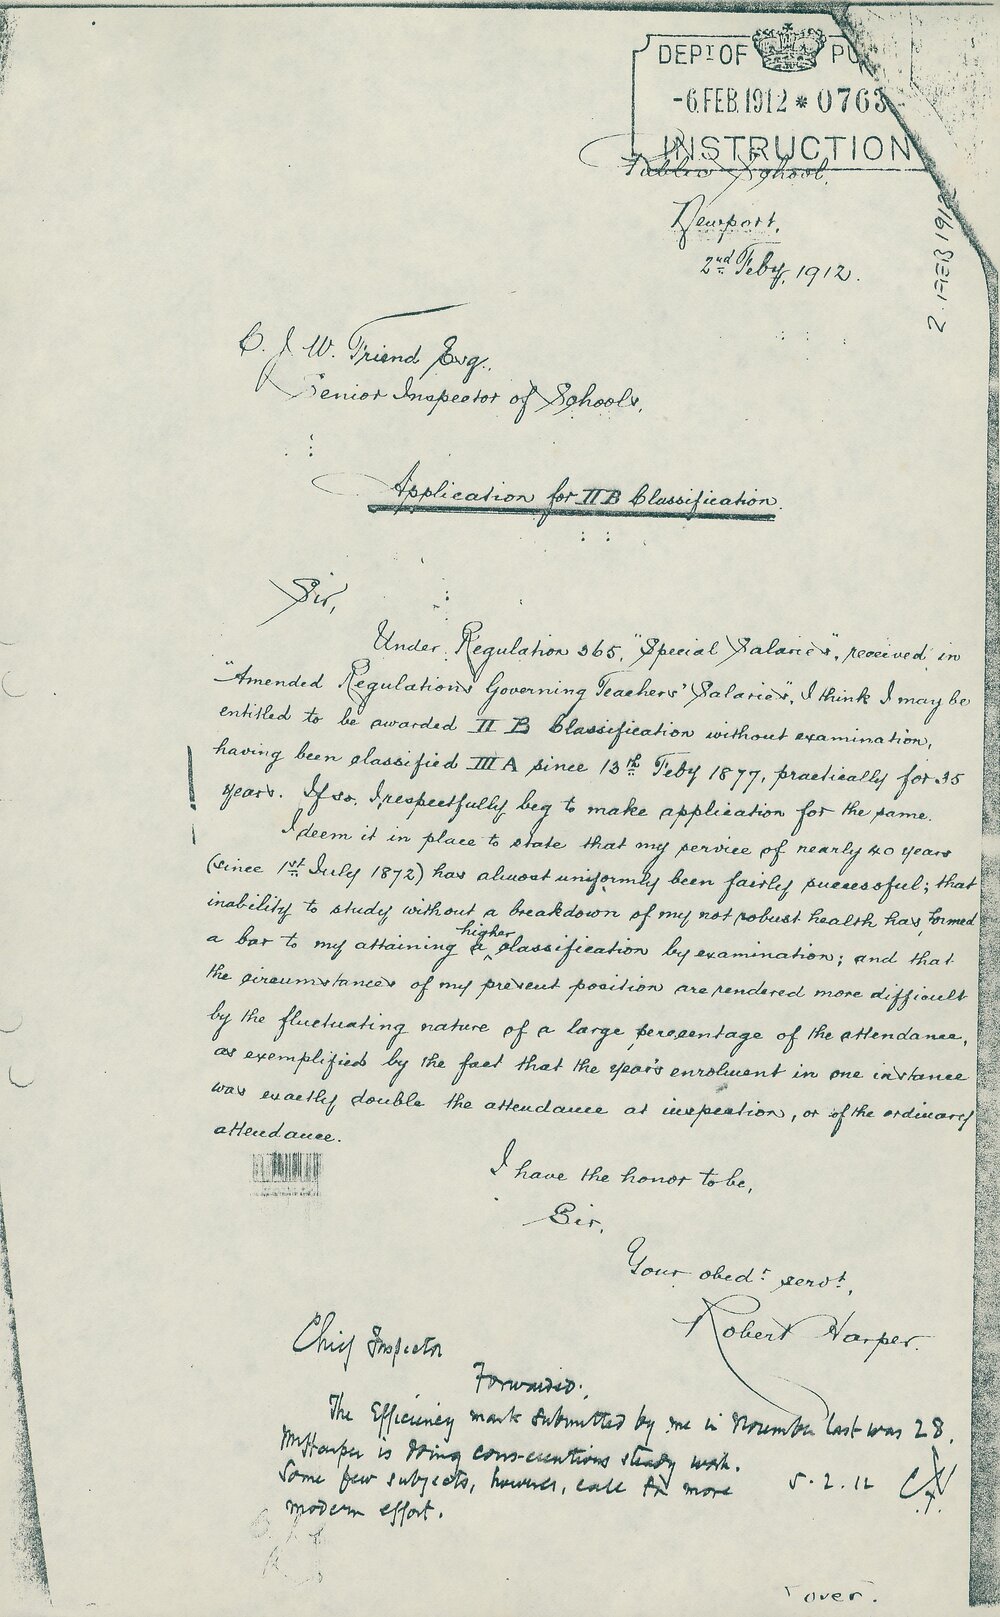 DEPT OF PU
-6 FEB. 1912 * 0763
INSTRUCTION
Public School,
Newport,
2nd Feby, 1912.
2 FEB 191
C. J. W. Friend Esq.,
Senior Inspector of Schools.
Application for II B Classification.
Sir,
Under Regulation 365, "Special Salaries", received in
"Amended Regulations Governing Teachers' Salaries", I think I may be
entitled to be awarded II B Classification without examination,
having been classified III A since 13th Feby 1877, practically for 35
years. If so, I respectfully beg to make application for the same.
I deem it in place to state that my service of nearly 40 years
(since 1st July 1872) has almost uniformly been fairly successful; that
inability to study without a breakdown of my not robust health has formed
a bar to my attaining a higher classification by examination; and that
the circumstances of my present position are rendered more difficult
by the fluctuating nature of a large percentage of the attendance,
as exemplified by the fact that the year's enrolment in one instance
was exactly double the attendance at inspection, or of the ordinary
attendance.
I have the honor to be,
Sir,
Your obedt servt,
Robert Harper.
Chief Inspector
Forwarded.
The Efficiency mark submitted by me in November last was 28.
Mr Harper is doing conscientious steady work.
Some few subjects, however, call for more
modern effort.
5.2.12
over.